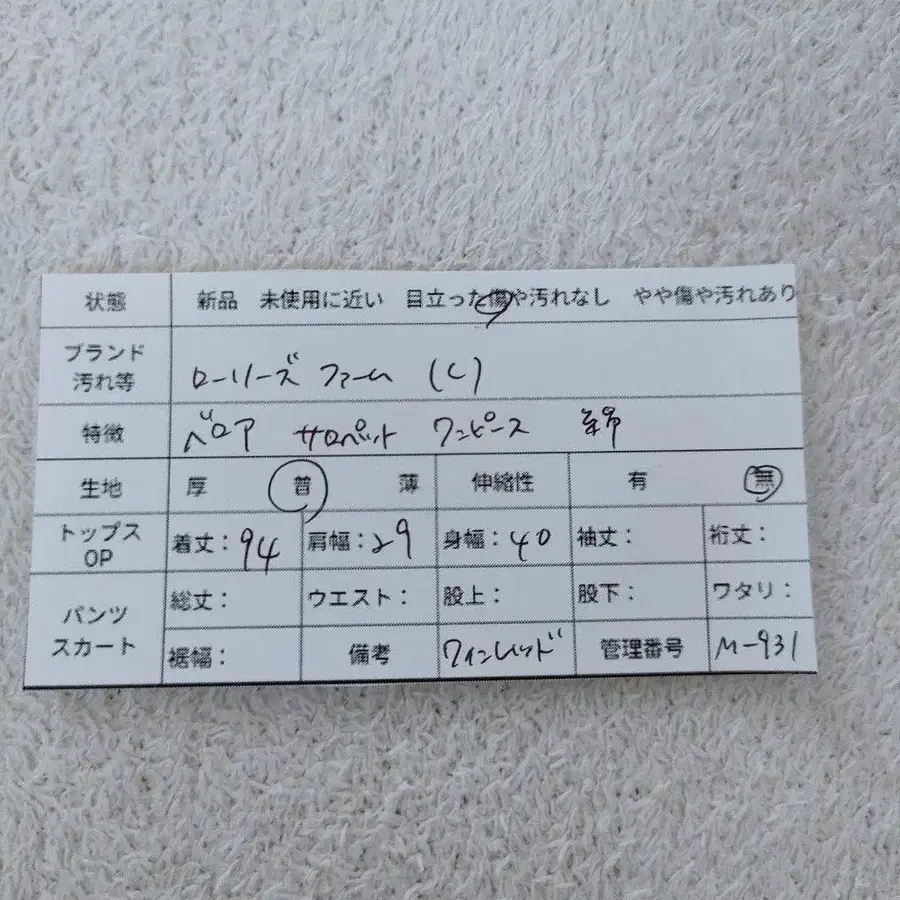 状態 新品 未使用に近い 目立った傷や汚れなし やや傷や汚れあり
ブランド
汚れ等 ローリーズ ファーム (L)
特徴 ベロア サロペット ワンピース 綿
生地 厚 普 薄 伸縮性 有 無
トップス
OP 着丈：94 肩幅：29 身幅：40 袖丈： 裄丈：
パンツ
スカート 総丈： ウエスト： 股上： 股下： ワタリ：
裾幅： 備考 ワインレッド 管理番号 M-931